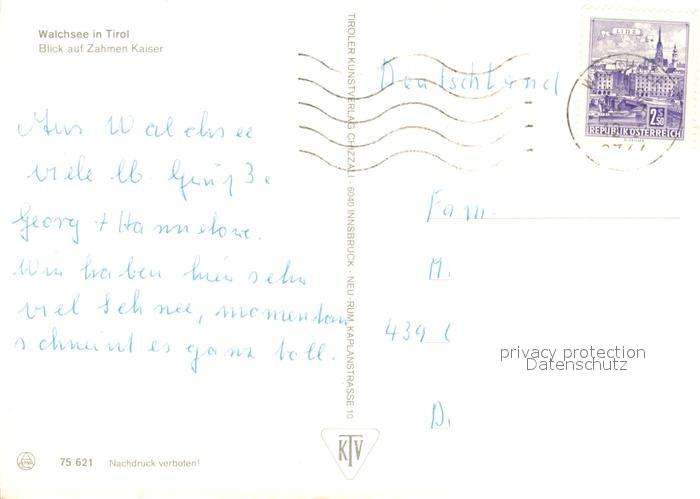 Walchsee in Tirol
Blick auf Zahmen Kaiser
Aus Walchsee
viele lb. Grüße
Georg + Hannelore.
Wir haben hier sehr
viel Schnee, momentan
schneint es ganz toll.
75 621 Nachdruck verboten!
TIROLER KUNSTVERLAG CHIZZALI · 6040 INNSBRUCK - NEU-RUM, KAPLANSTRASSE 10
KTV
LINZ
2.50 S
REPUBLIK ÖSTERREICH
Deutschland
Fam.
M.
439
D.
privacy protection
Datenschutz